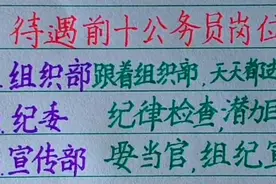 待遇前十公务员岗位
组织部 跟着组织部,天天都
纪委 纪律检查,潜力
宣传部 要当官,组纪宣